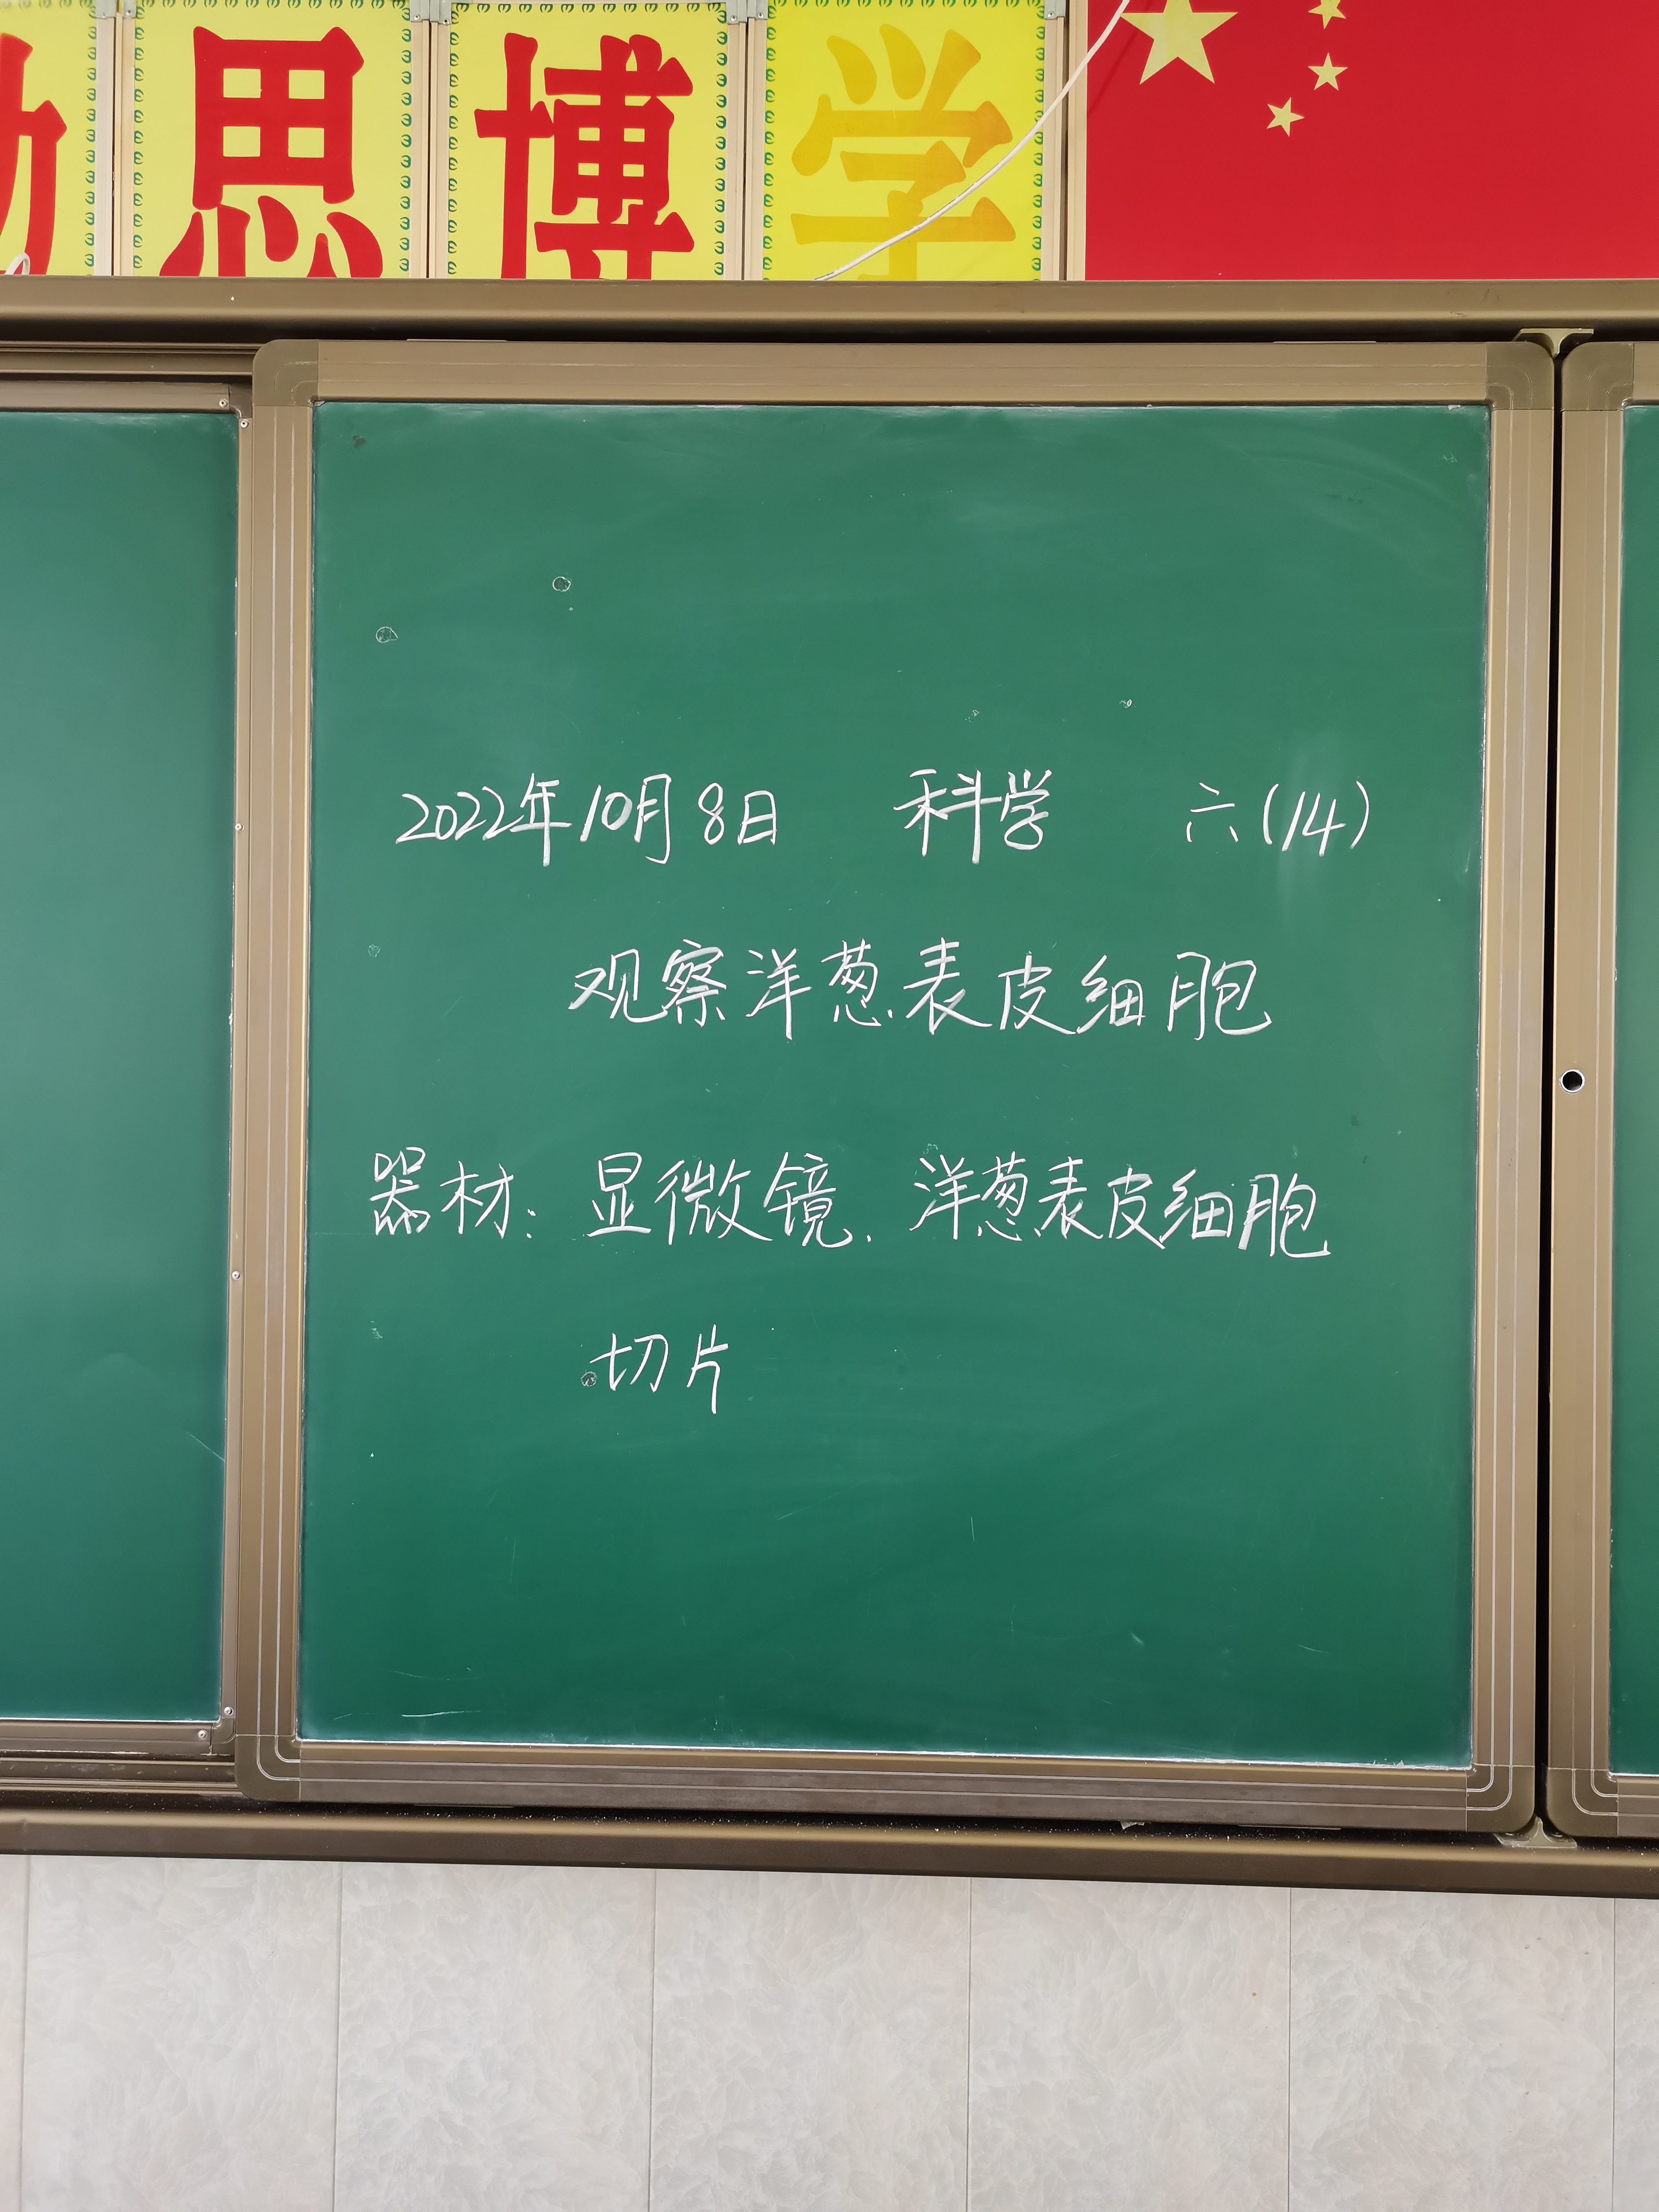 思博学
2022年10月8日 科学 六(14)
观察洋葱表皮细胞
器材:显微镜、洋葱表皮细胞
切片